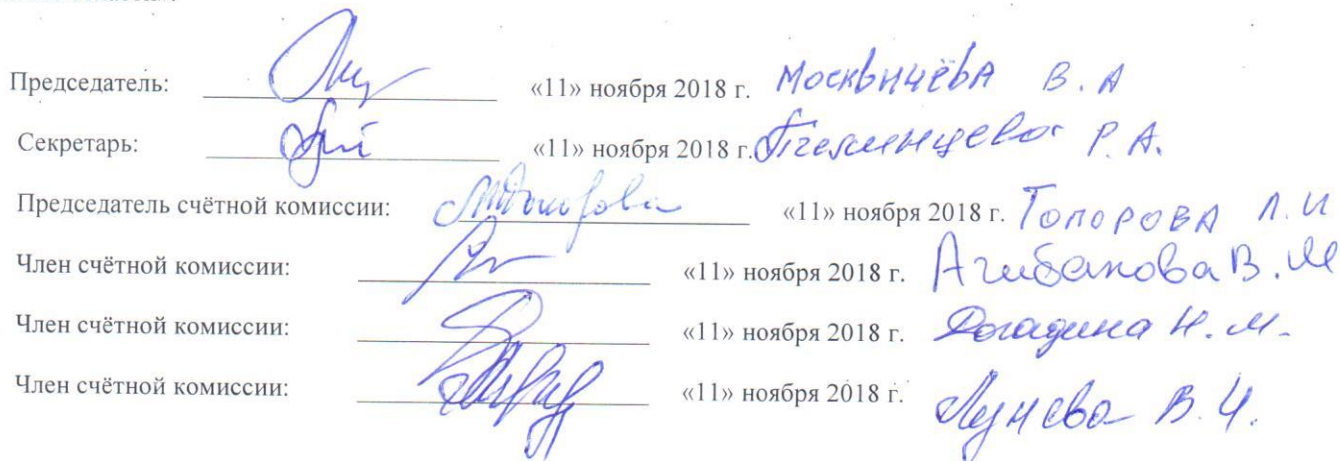 Председатель: «11» ноября 2018 г. Москвичёва В. А
Секретарь: «11» ноября 2018 г. Р. А.
Председатель счётной комиссии: «11» ноября 2018 г. Топорова Л. И
Член счётной комиссии: «11» ноября 2018 г. Агибалова В. М
Член счётной комиссии: «11» ноября 2018 г. Догадина Н. М.
Член счётной комиссии: «11» ноября 2018 г. Лунева В. И.